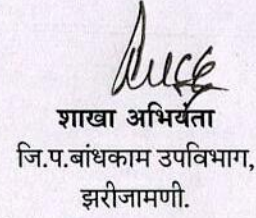 शाखा अभियंता
जि.प.बांधकाम उपविभाग,
झरीजामणी.